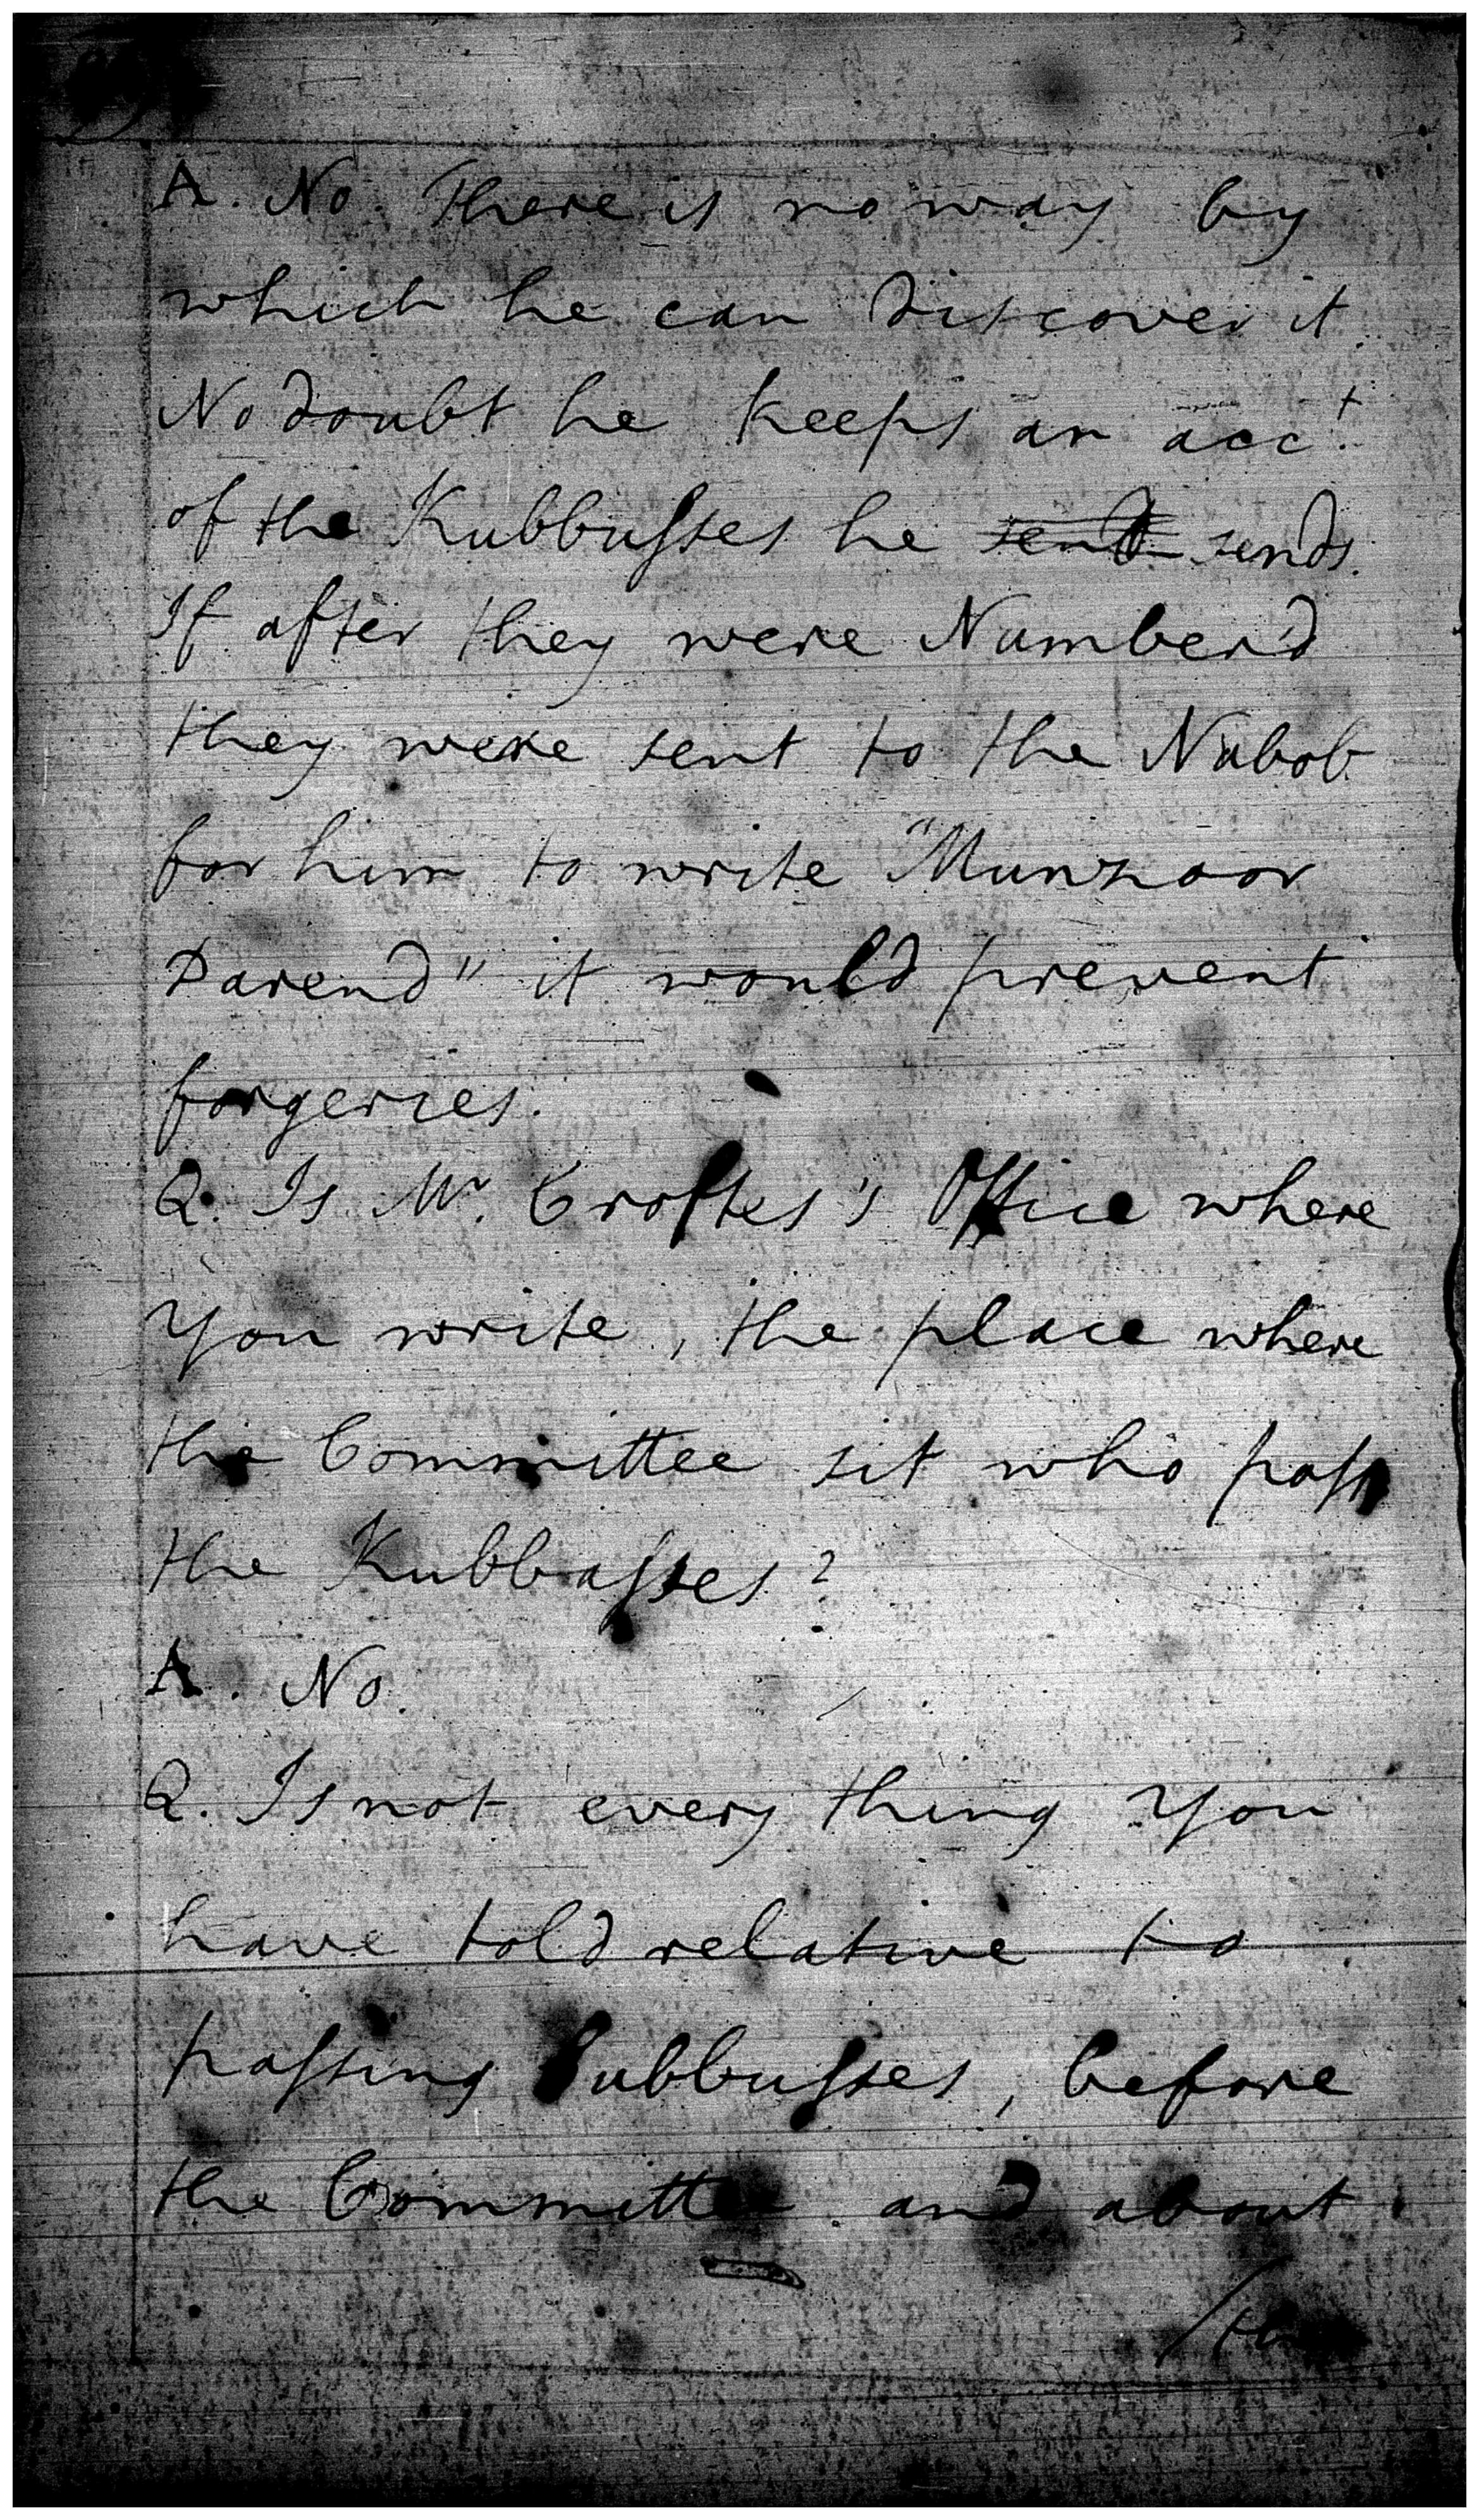 A. No. There is no way by
which he can discover it.
No doubt he keeps an acc.t
of the Kubbusses he sent sends.
If after they were Number'd
they were sent to the Nabob
for him to write "Munzoor
Darend" it would prevent
forgeries.
Q. Is Mr. Croftes's Office where
you write, the place where
the Committee sit who pass
the Kubbasses?
A. No.
Q. Is not every thing you
have told relative to
passing Kubbusses, before
the Committee and about